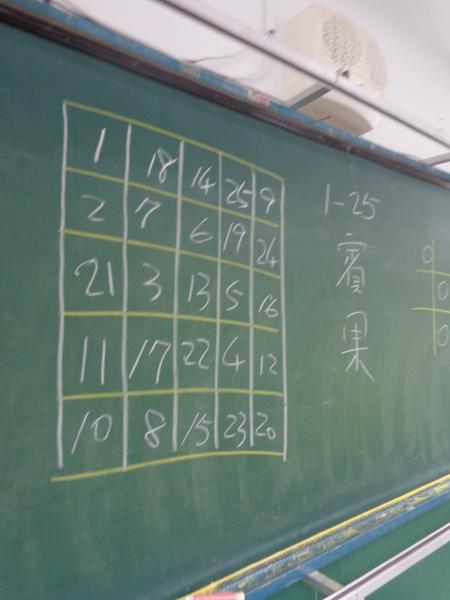 1 18 14 25 9
2 7 6 19 24
21 3 13 5 16
11 17 22 4 12
10 8 15 23 20
1-25
賓
果
0
0
0